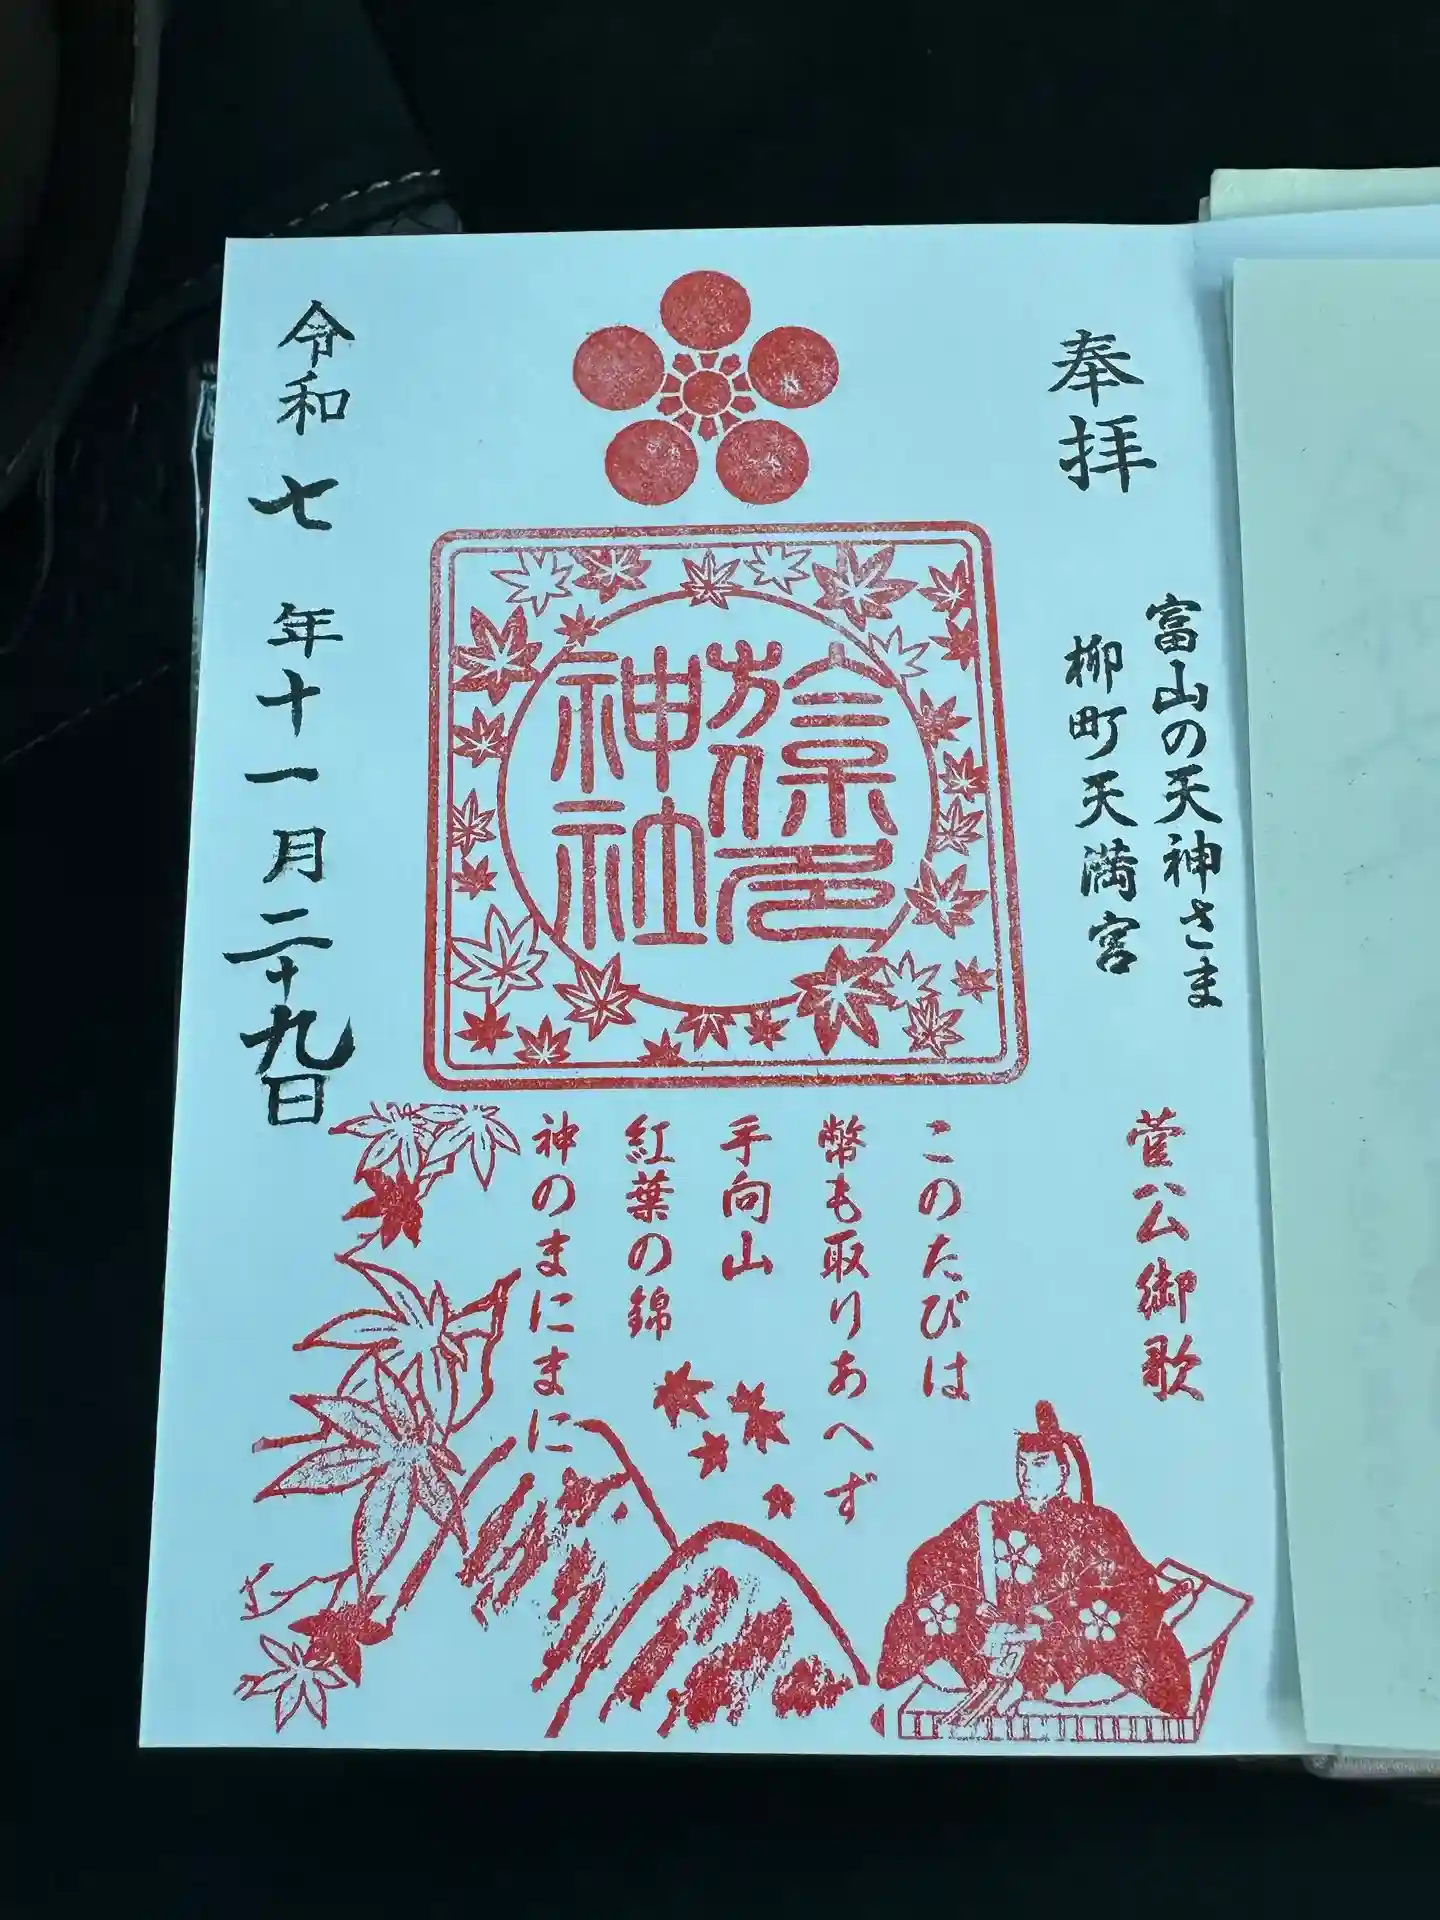 奉拝
富山の天神さま
柳町天満宮
於保多
神社
令和七年十一月二十九日
菅公御歌
このたびは
幣も取りあへず
手向山
紅葉の錦
神のまにまに